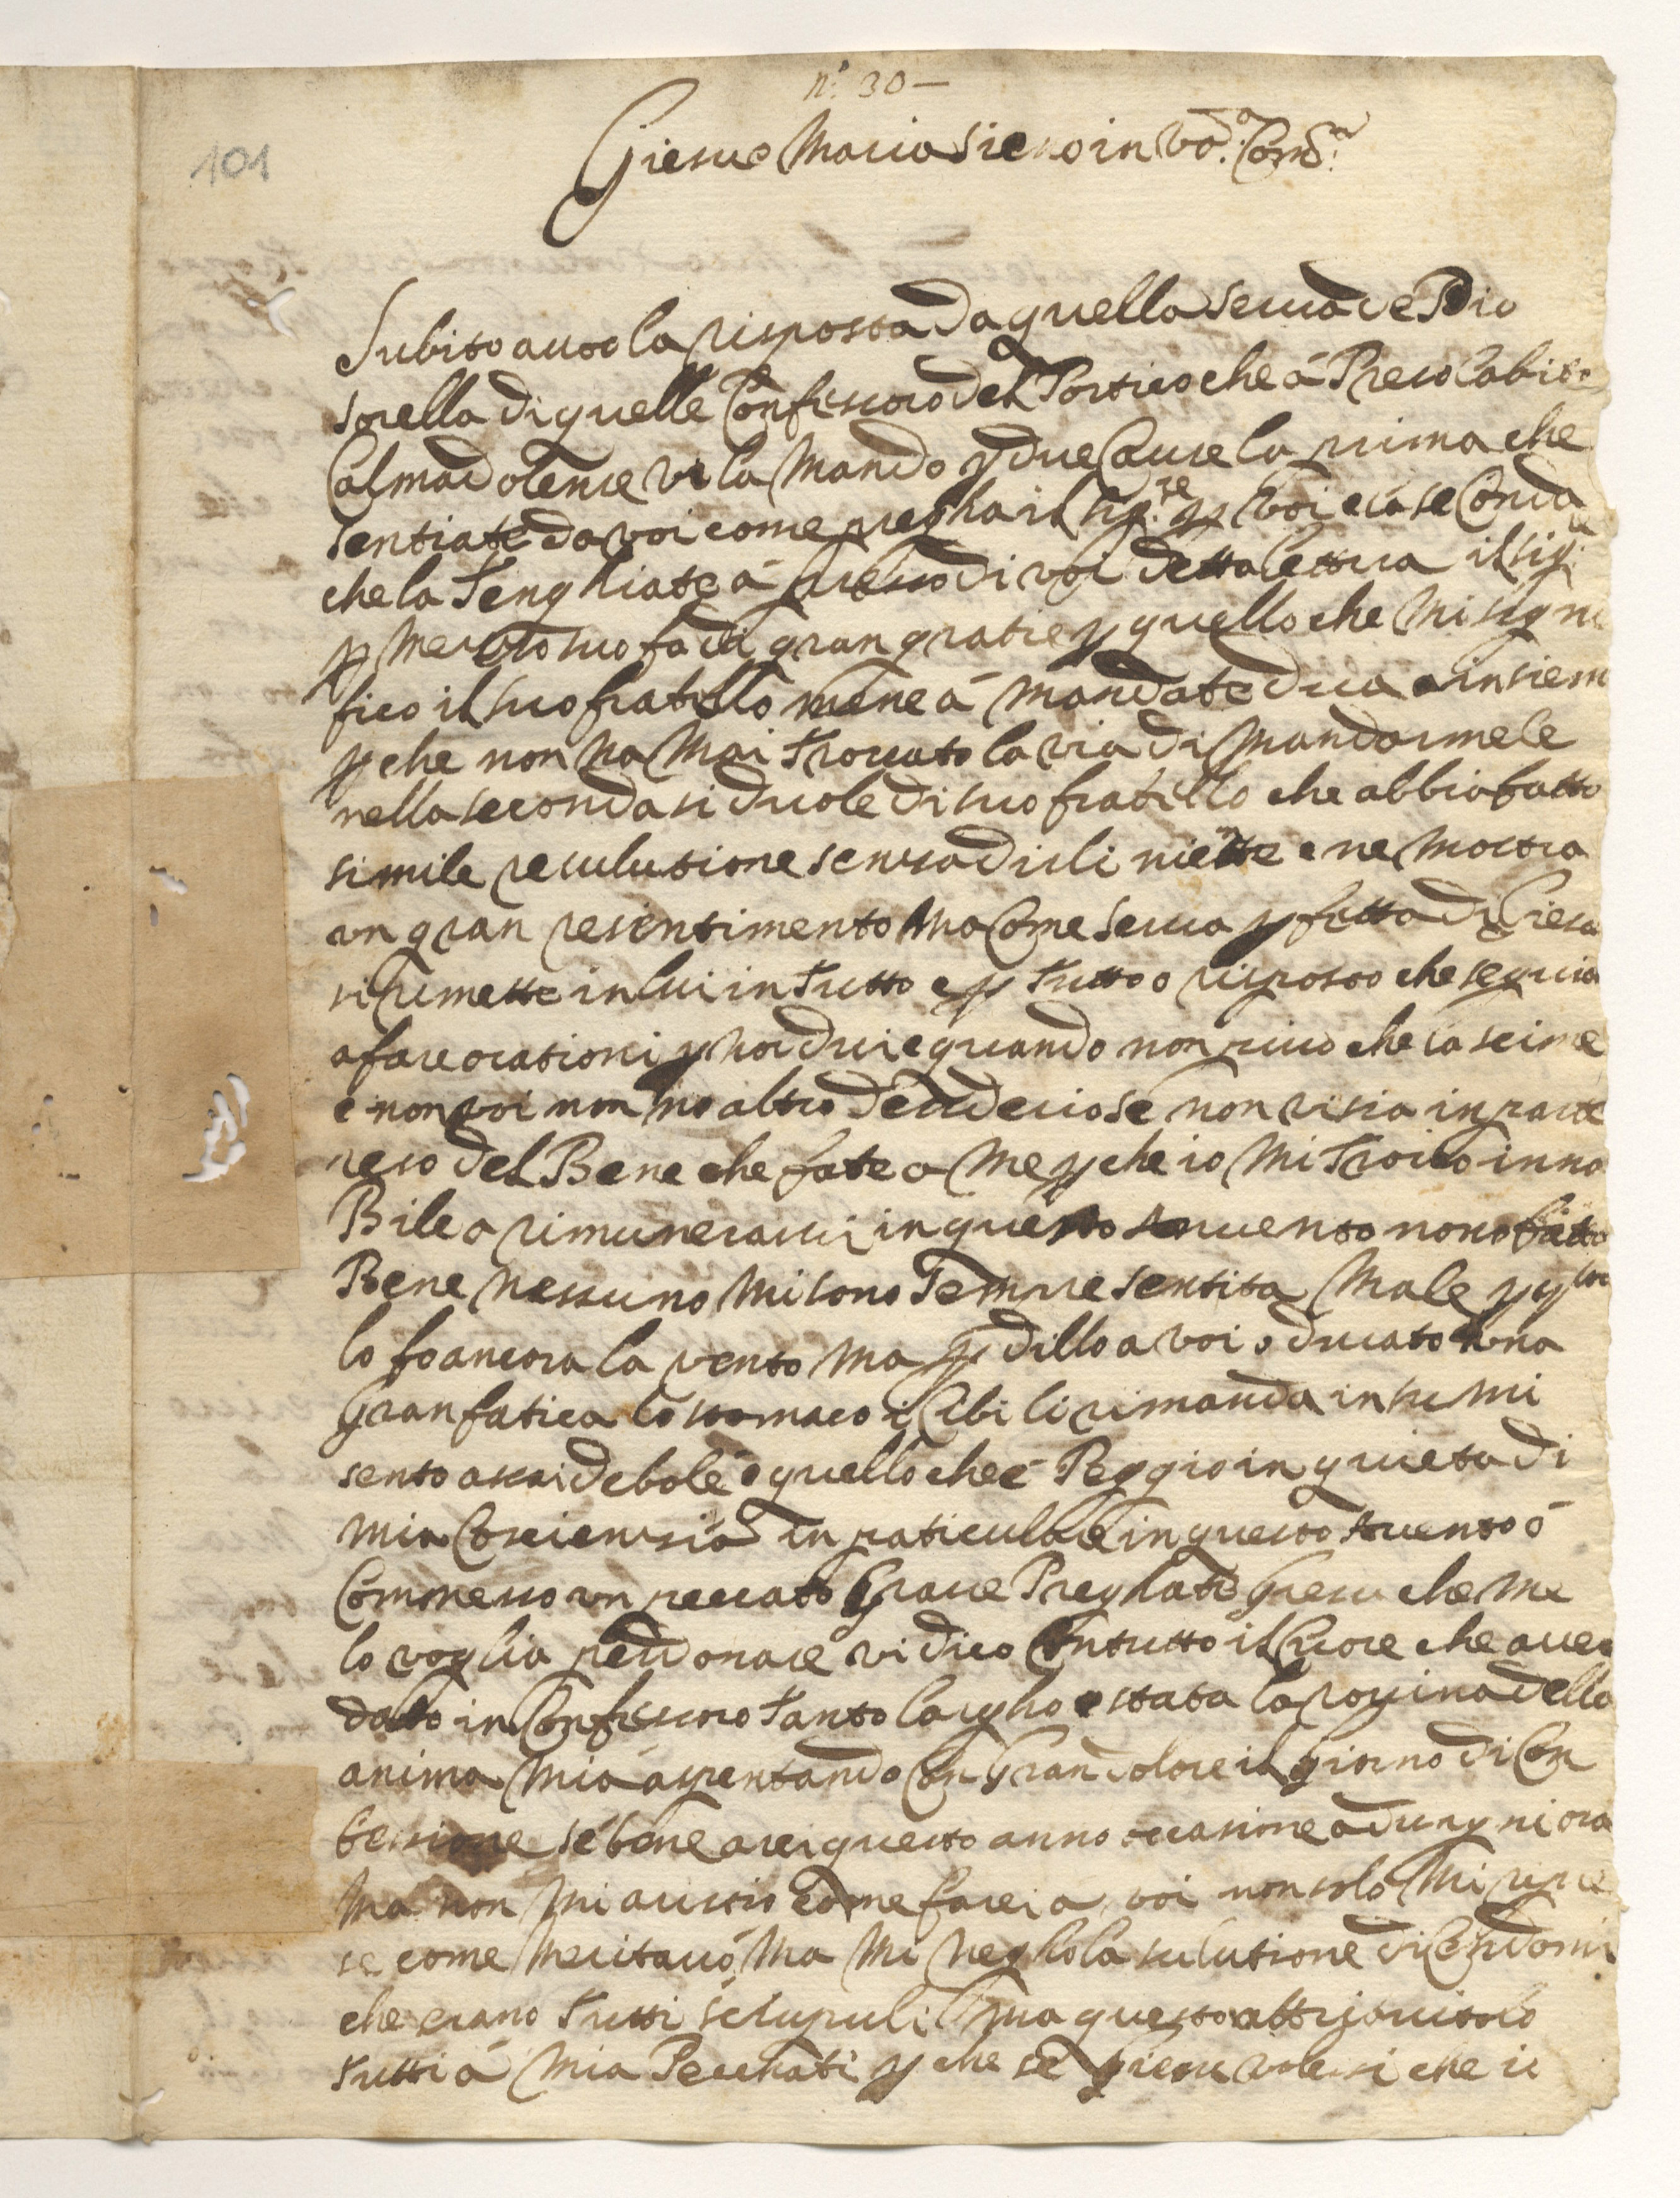 n.° 30 —
101
Giesue Maria sieno in vo.a Com.a
Subito auto la risposta da quella serua de Dio
sorella di quelle Confesoro del Portico che á Preso labito
Calmadolense ve la Mando p due Cause la prima che
sentiate da voi come pregha il sig.re p voi e la seConda
che la Tenghiate á preso di voi detta lettera il sig.re
p Merito suo fa di gran gratie p quello che Mi signi
fico il suo fratello mene á Mandate dua insiem
p che non na Mai Trouato la via di Mandarmele
nella seconda si duole di suo fratello che abbia fatto
simile resulutione senza dirli niente e ne Mostra
un gran resentimento Ma Come serua p fetta di Giesu
si rimette in lui in Tutto e p Tutto o risposto che seguia
a fare orationi p noi dui e quando non pura che lasci me
e non voi non no altro desiderio se non vi sia in parte
reso del Bene che fate a Me p che io Mi Trouo inno
Bile a rimunerarui in questo auento non o fatto
Bene Nessuno Mi sono sempre sentita Male p
lo fo ancora la vento Ma p dillo a voi o durato una
Gran fatica lo stomaco i Cibi li rimanda in su Mi
sento assai debole e quello che é Peggio in quieta di
Mia Coscienzia in paticulare in questo auento ó
Commesso un peccato Graue Preghate Giesu che Me
lo voglia perdonare vi dico Con tutto il Cuore che auer
dato in Confesoro Tanto largho e stata la rouina della
anima Mia aspentando Con Gran dolore il giorno di Con
fessione se bene arei questo anno occasione ad ugni ora
Ma non Mi aristio come faceia voi non solo Mi ripre
se come Meritauo Ma Mi neghò la sulutione dicendomi
che erano Tutti scrupuli Ma questo attribuiscolo
Tutti á Mia Pecchati p che se Giesu volessi che io